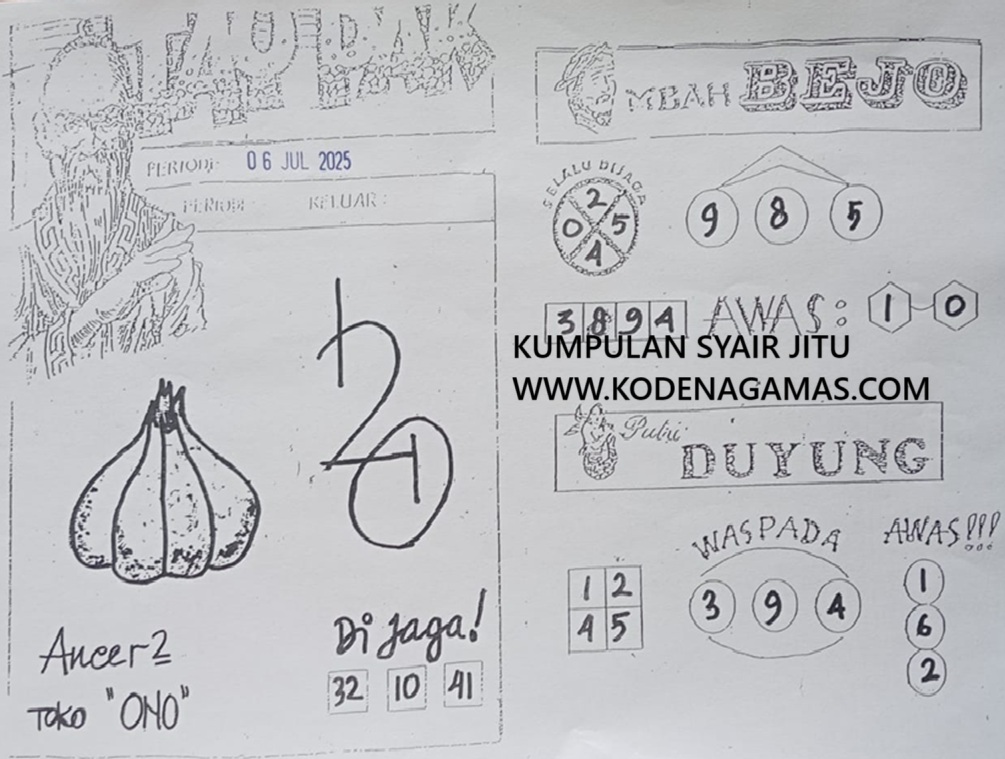 TAPAK
PERIODE: 06 JUL 2025
PERIODE: KELUAR:
Ancer2
TOKO "ONO"
Di jaga!
32 10 41
MBAH BEJO
SELALU DIJAGA
2
0 5
4
9 8 5
3894
AWAS: 1 0
KUMPULAN SYAIR JITU
WWW.KODENAGAMAS.COM
Putri
DUYUNG
1 2
4 5
WASPADA
3 9 4
AWAS!!!
1
6
2